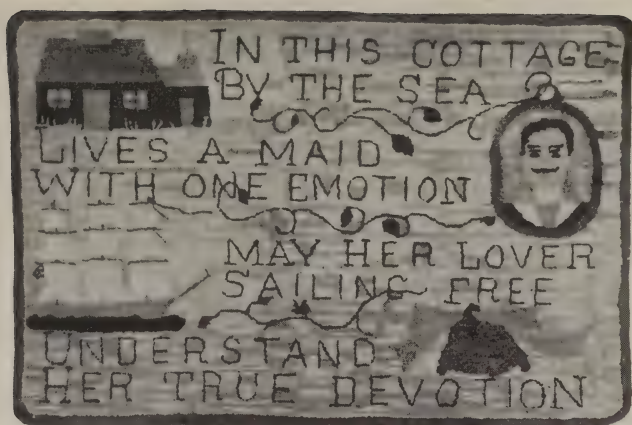 IN THIS COTTAGE
BY THE SEA
LIVES A MAID
WITH ONE EMOTION
MAY HER LOVER
SAILING FREE
UNDERSTAND
HER TRUE DEVOTION